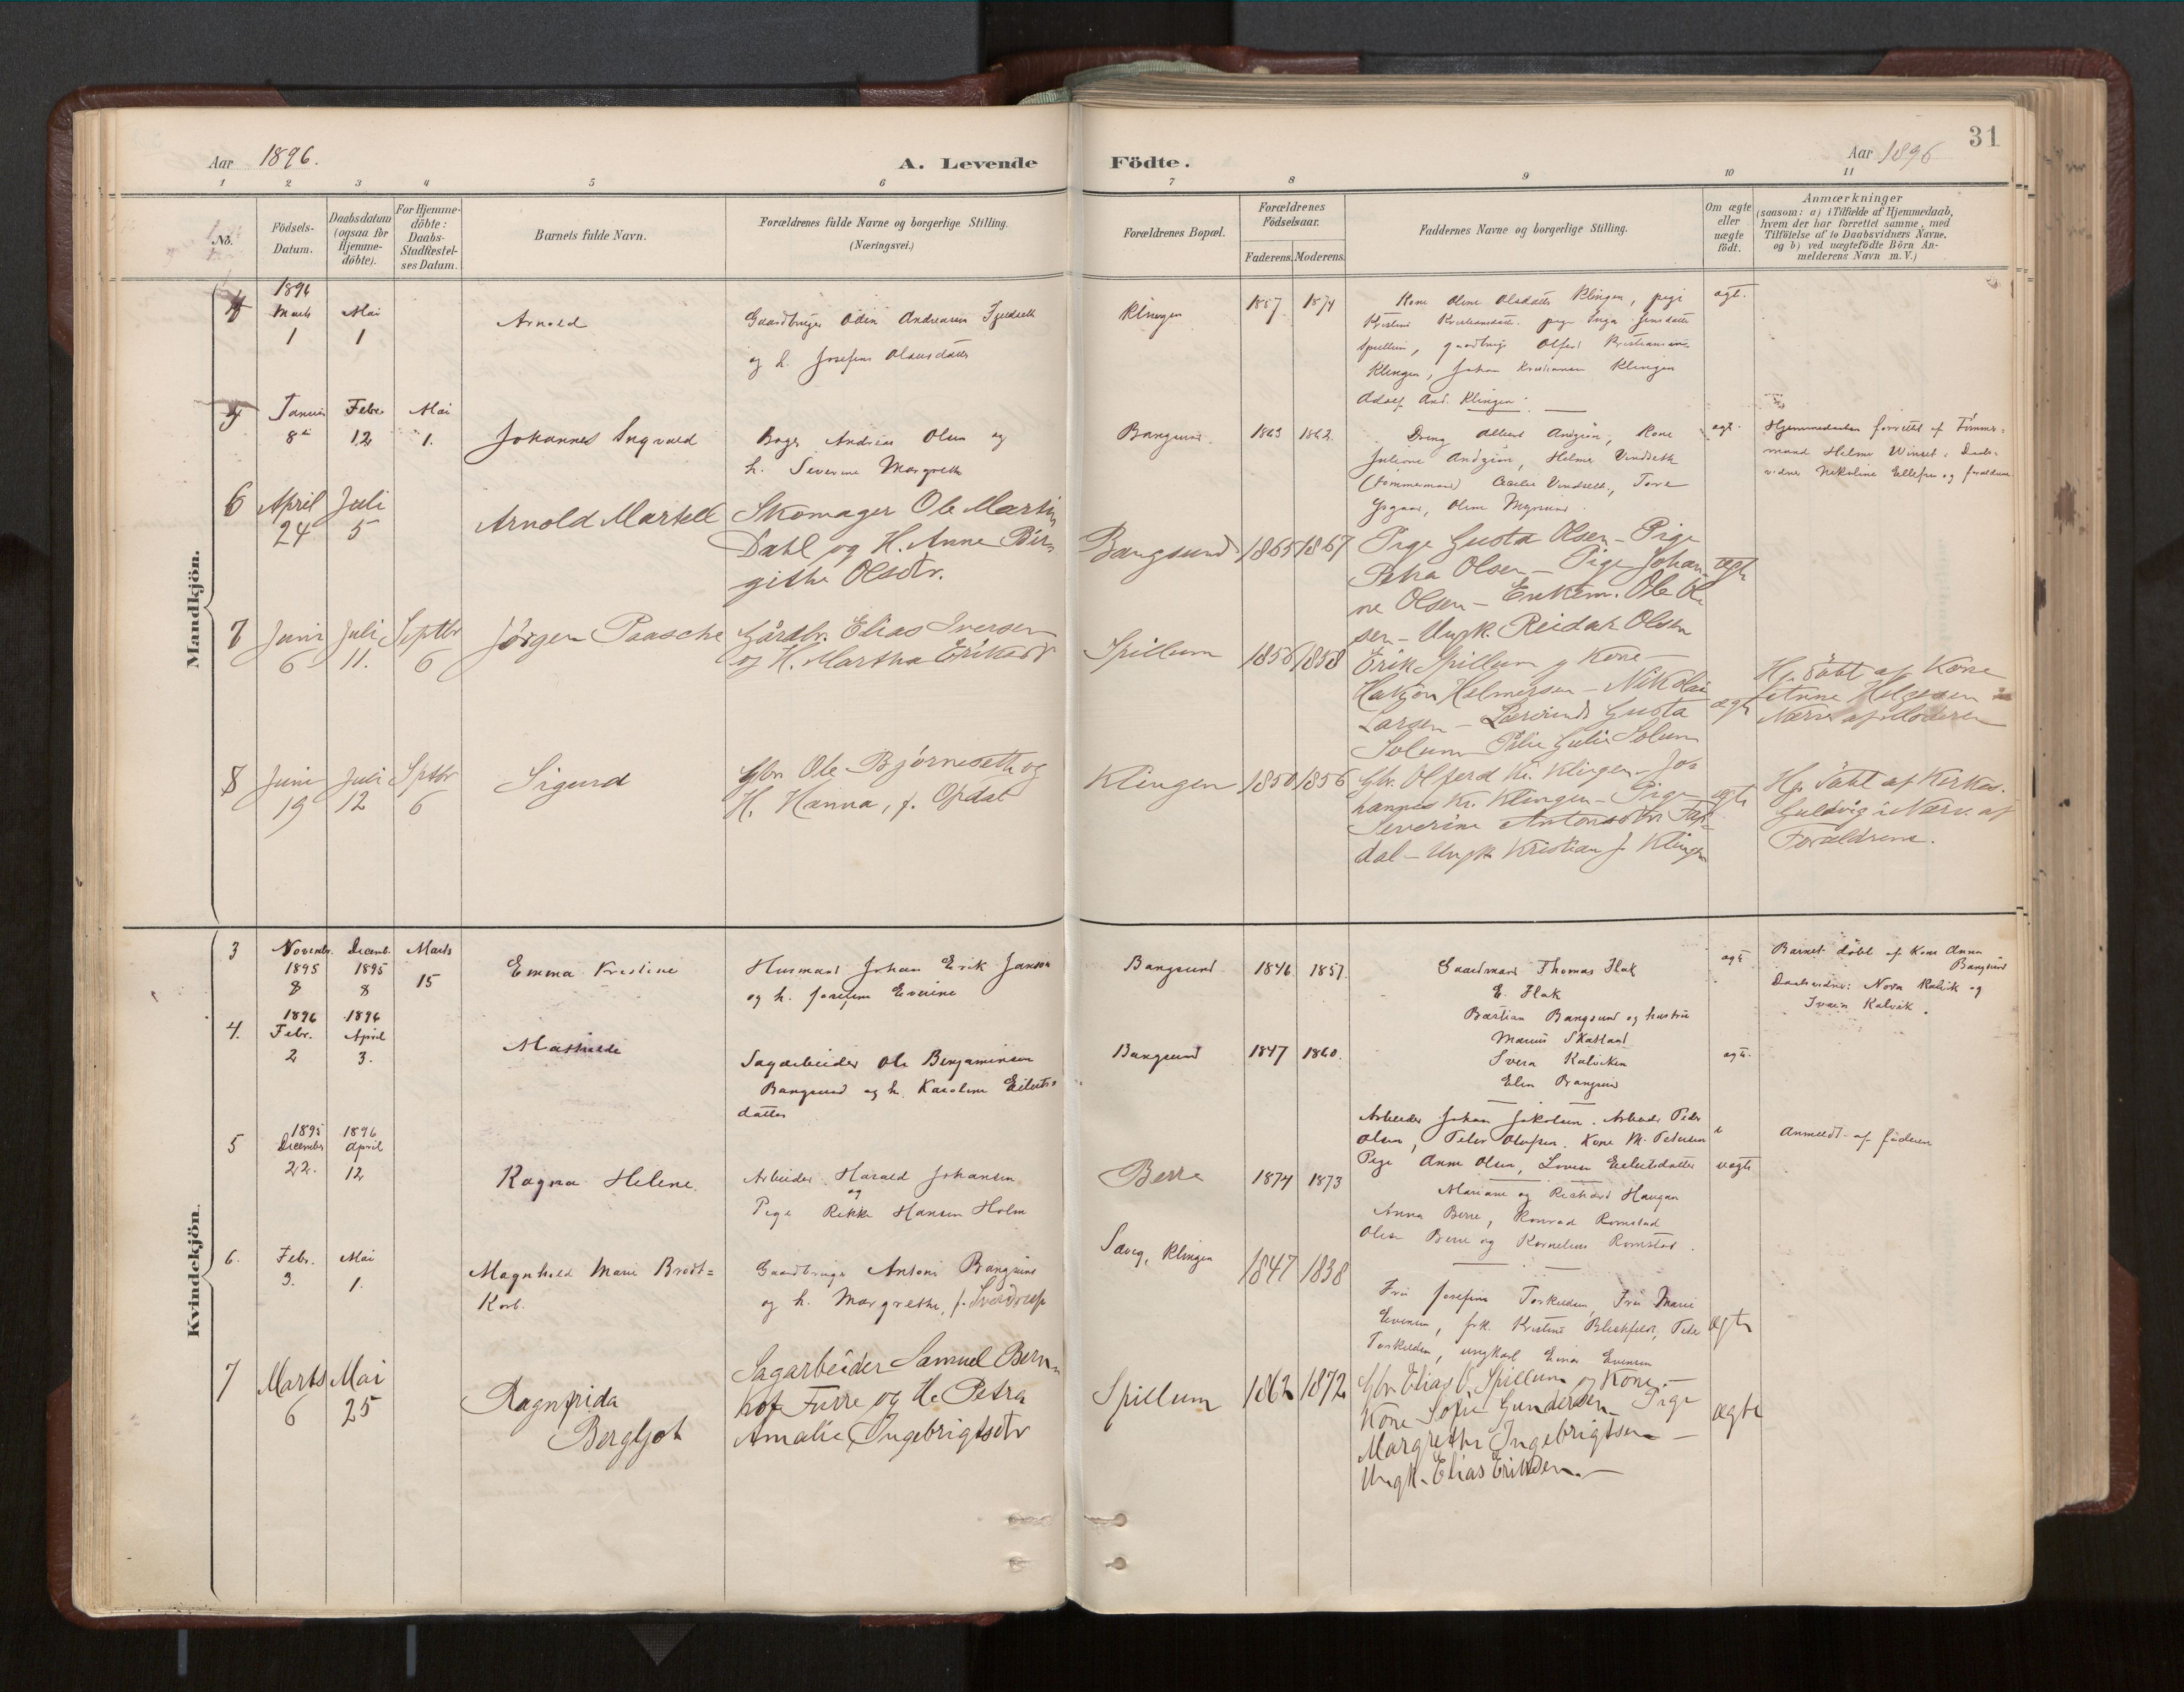 31
Aar 1896.
A. Levende
Födte.
Aar 1896
1 2 3 4 5 6 7 8 9 10 11
No.
Födsels-
Datum.
Daabsdatum
(ogsaa for
Hjemme-
döbte).
For Hjemme-
döbte:
Daabs-
Stadfæstel-
ses Datum.
Barnets fulde Navn.
Forældrenes fulde Navne og borgerlige Stilling.
(Næringsvei.)
Forældrenes Bopæl.
Forældrenes
Födselsaar.
Faderens. Moderens.
Faddernes Navne og borgerlige Stilling.
Om ægte
eller
uægte
födt.
Anmærkninger
(saasom: a) i Tilfælde af Hjemmedaab,
hvem der har forrettet samme, med
Tilföielse af to Daabsvidners Navne,
og b) ved uægtefödte Börn An-
melderens Navn m. V.)
Mandkjön.
1896
Marts
1
Mai
1
Arnold
Gaardbruger Odin Andreasen
og h. Josefine Olausdatter
Klingen
1874
Kone Oline Olsdatter Klingen, pige
Kristine Kristiansdatter. pige Inga Jensdatter
Spillum, gaardbruger Olferd Kristiansen
Klingen, Johan Kristiansen Klingen
Adolf And. Klingen.
ægt.
Januar
8
Febr.
12
Mai
1.
Johannes Ingvald
Andreas Olsen og
h. Severine Margrethe
Bangsund.
1863 1862.
Dreng Albert Kone
Juliane Helmer Vindseth
(Tømmermand)
Oline
ægt.
Hjemmedaaben forrettet af Tømmer-
mand Helmer
Nikoline Ellefsen og forældrene
6
April
24
Juli
5
Arnold Martell
Skomager Ole Martin
Dahl og H. Anne Bir-
githe Olsdtr.
Bangsund
1865 1867
Pige Gusta Olsen – Pige
Petra Olsen – Pige Johan-
ne Olsen – Enkem. Ole Ol-
sen – Ungk. Reidar Olsen
ægte
7
Juni
6
Juli
11.
Septbr
6
Jørgen Paasche
Gårdbr. Elias Iversen
og H. Martha Eriksdr
Spillum
1856 1858
Erik Spillum og Kone –
Hakon Helmersen – Nikolai
Larsen – Gusta
Solum Julie Solum
ægte
Hj. døbt af Kone
Anne Helgesen i
Nærv. af Moderen
8
Juni
19
Juli
12
Sptbr
6
Sigurd
Gbr. Ole Bjørneseth og
H. Hanna, f. Opdal
Klingen
1850 1856
Gbr. Olferd Kr. Klingen – Jo-
hannes Kr. Klingen – Pige
Severine Antonsdtr
dal – Ungk Kristian J. Klingen
ægte
Hj. døbt af Kirkes.
Guldvig i Nærv. af
Forældrene.
Kvindekjön.
3
Novembr.
1895
8
Decemb.
1895
8
Marts
15
Emma Kristine
Husmand Johan Erik Jansen
og h. Josefine Everine
Bangsund
1846 1857.
Gaardmand Thomas Hak
E. Hak
Bastian Bangsund og hustru
Marius Skatland
Svera
Elen Bangsund
ægte
Barnet døbt af Kone Anna
Bangsund
Daabsvidner: Nora Kalvik og
Kalvik.
4.
1896
Febr.
2
1896
April
3.
Mathilde
Sagarbeider Ole Benjaminsen
Bangsund og h. Karoline Eilerts-
datter
Bangsund
1847 1860.
Arbeider Johan Jakobsen. Arbeider Peder
Olsen, Peder Olufsen. Kone M. Petersen
Pige Anne Olsen, Lovise Eilertsdatter
ægte.
5
1895
December
22.
1896
April
12
Ragna Helene.
Arbeider Harald Johansen
og
Pige Rikke Hansen Holm
Berre
1874 1873
Mariane og Richard Haugan
Anna Berre, Konrad Romstad
Olise Berre og Kornelius Romstad.
uægte
Anmeldt af faderen
6.
Febr.
3.
Mai
1.
Magnhild Marie Brodt-
Korb.
Gaardbruger Antoni Bangsund
og h. Margrethe, f. Sverdrup
Sævig, Klingen
1847 1838
Fru Josefine Torkildsen, Fru Marie
Evensen, frk. Kristine Blichfeldt, Peder
Torkildsen, ungkarl Einar Evensen
ægte
7
Marts
6
Mai
25
Ragnfrida
Bergljot
Sagarbeider Samuel Bern-
hof Furre og H. Petra
Amalie Ingebrigtsdtr
Spillum
1862 1872
Gbr. Elias O. Spillum og Kone. –
Kone Sofie Gundersen – Pige
Margrethe Ingebrigtsen –
Ungk. Elias Eriksen. –
ægte